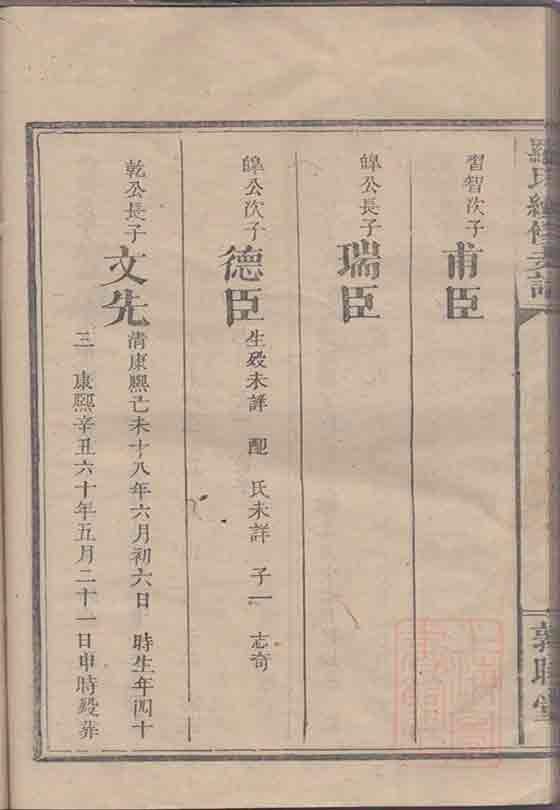 羅氏續修支譜
敦睦堂
習智次子 甫臣
皥公長子 瑞臣
皥公次子 德臣 生殁未詳 配 氏未詳 子一 志奇
乾公長子 文先 清康熙己未十八年六月初六日 時生年四十
三 康熙辛丑六十年五月二十一日申時殁葬